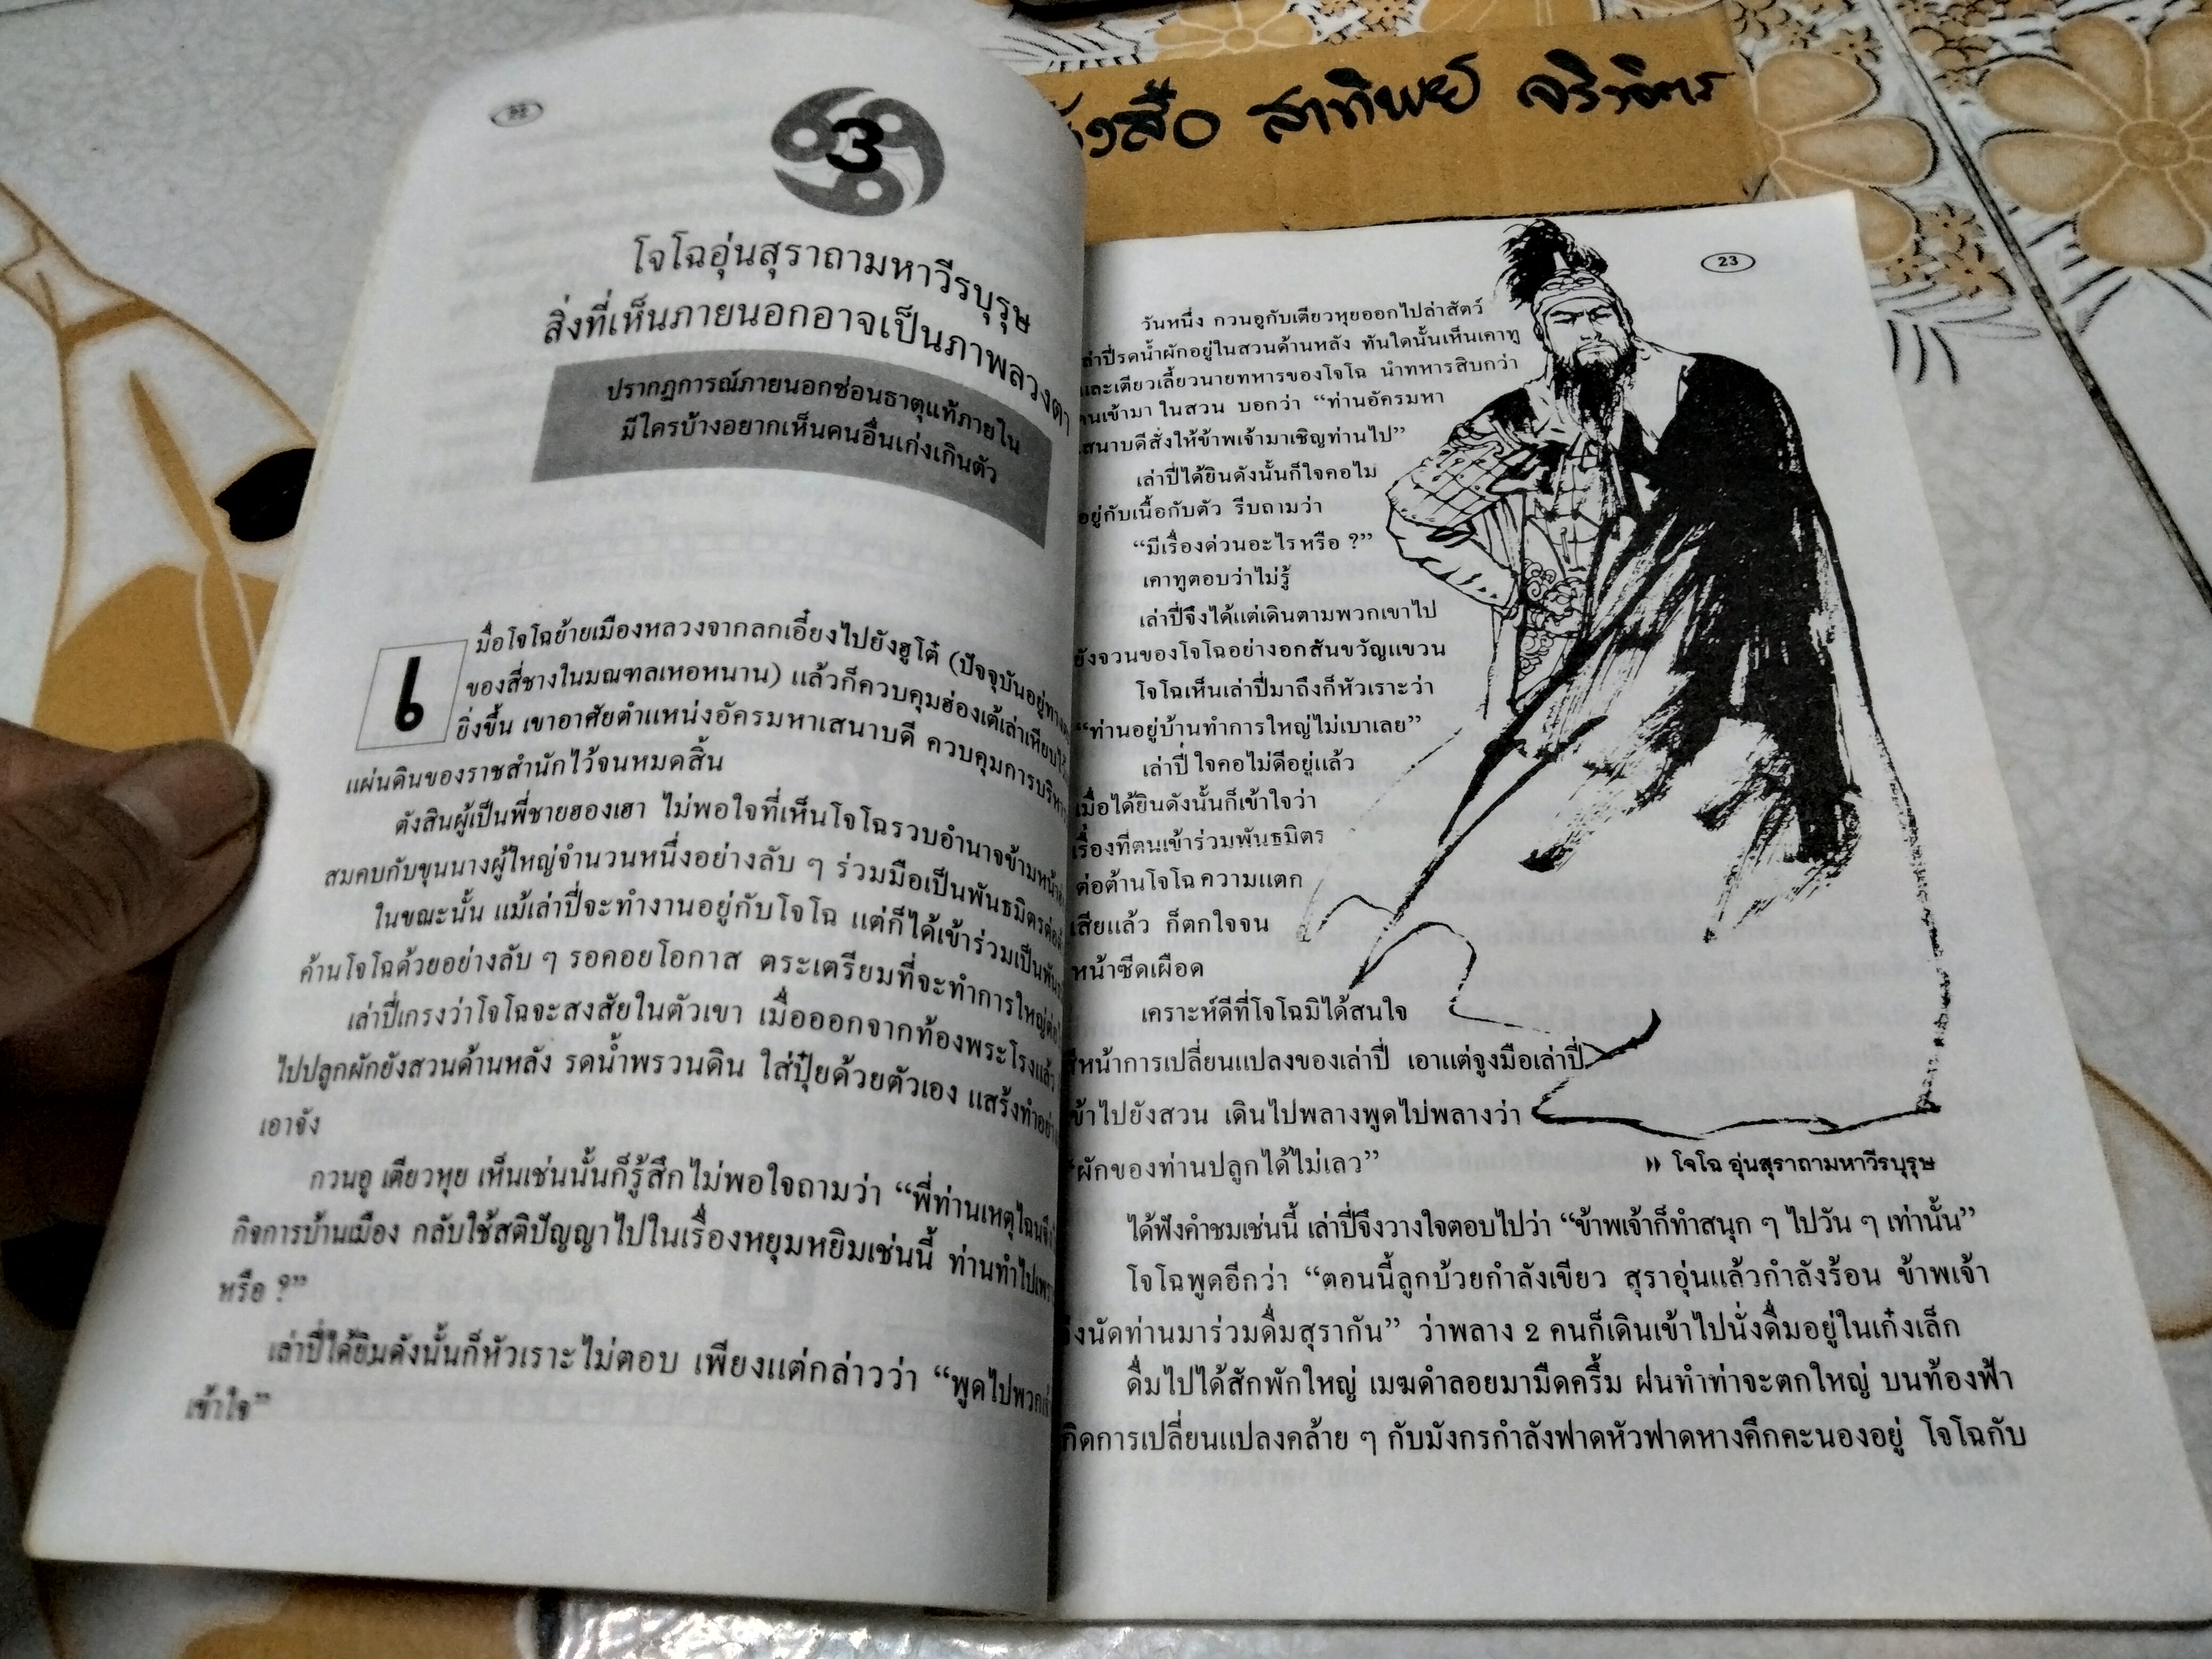 3
โจโฉอุ่นสุราถามหาวีรบุรุษ
สิ่งที่เห็นภายนอกอาจเป็นภาพลวงตา
ปรากฏการณ์ภายนอกซ่อนธาตุแท้ภายใน
มีใครบ้างอยากเห็นคนอื่นเก่งเกินตัว
เมื่อโจโฉย้ายเมืองหลวงจากลกเอี๋ยงไปยังฮูโต๋ (ปัจจุบันอยู่ทาง
ของสี่ชางในมณฑลเหอหนาน) แล้วก็ควบคุมฮ่องเต้เล่าเหียบไว้
ยิ่งขึ้น เขาอาศัยตำแหน่งอัครมหาเสนาบดี ควบคุมการบริหาร
แผ่นดินของราชสำนักไว้จนหมดสิ้น
ตังสินผู้เป็นพี่ชายฮองเฮา ไม่พอใจที่เห็นโจโฉรวบอำนาจข้ามหน้า
สมคบกับขุนนางผู้ใหญ่จำนวนหนึ่งอย่างลับ ๆ ร่วมมือเป็นพันธมิตร
ในขณะนั้น แม้เล่าปี่จะทำงานอยู่กับโจโฉ แต่ก็ได้เข้าร่วมเป็น
ค้านโจโฉด้วยอย่างลับ ๆ รอคอยโอกาส ตระเตรียมที่จะทำการใหญ่
เล่าปี่เกรงว่าโจโฉจะสงสัยในตัวเขา เมื่อออกจากท้องพระโรงแล้ว
ไปปลูกผักยังสวนด้านหลัง รดน้ำพรวนดิน ใส่ปุ๋ยด้วยตัวเอง แสร้งทำ
เอาจัง
กวนอู เตียวหุย เห็นเช่นนั้นก็รู้สึกไม่พอใจถามว่า “พี่ท่านเหตุไฉน
กิจการบ้านเมือง กลับใช้สติปัญญาไปในเรื่องหยุมหยิมเช่นนี้ ท่านทำไป
หรือ ?”
เล่าปี่ได้ยินดังนั้นก็หัวเราะไม่ตอบ เพียงแต่กล่าวว่า “พูดไป
เข้าใจ”
หนังสือ สาทิพย์ จริงจิตร
23
วันหนึ่ง กวนอูกับเตียวหุยออกไปล่าสัตว์
เล่าปี่รดน้ำผักอยู่ในสวนด้านหลัง ทันใดนั้นเห็นเคาทู
และเตียวเลี้ยวนายทหารของโจโฉ นำทหารสิบกว่า
คนเข้ามา ในสวน บอกว่า “ท่านอัครมหา
เสนาบดีสั่งให้ข้าพเจ้ามาเชิญท่านไป”
เล่าปี่ได้ยินดังนั้นก็ใจคอไม่
อยู่กับเนื้อกับตัว รีบถามว่า
“มีเรื่องด่วนอะไรหรือ ?”
เคาทูตอบว่าไม่รู้
เล่าปี่จึงได้แต่เดินตามพวกเขาไป
ยังจวนของโจโฉอย่างอกสั่นขวัญแขวน
โจโฉเห็นเล่าปี่มาถึงก็หัวเราะว่า
“ท่านอยู่บ้านทำการใหญ่ไม่เบาเลย”
เล่าปี่ ใจคอไม่ดีอยู่แล้ว
เมื่อได้ยินดังนั้นก็เข้าใจว่า
เรื่องที่ตนเข้าร่วมพันธมิตร
ต่อต้านโจโฉ ความแตก
เสียแล้ว ก็ตกใจจน
หน้าซีดเผือด
เคราะห์ดีที่โจโฉมิได้สนใจ
สีหน้าการเปลี่ยนแปลงของเล่าปี่ เอาแต่จูงมือเล่าปี่
เข้าไปยังสวน เดินไปพลางพูดไปพลางว่า
“ผักของท่านปลูกได้ไม่เลว”
» โจโฉ อุ่นสุราถามหาวีรบุรุษ
ได้ฟังคำชมเช่นนี้ เล่าปี่จึงวางใจตอบไปว่า “ข้าพเจ้าก็ทำสนุก ๆ ไปวัน ๆ เท่านั้น”
โจโฉพูดอีกว่า “ตอนนี้ลูกบ้วยกำลังเขียว สุราอุ่นแล้วกำลังร้อน ข้าพเจ้า
จึงนัดท่านมาร่วมดื่มสุรากัน” ว่าพลาง 2 คนก็เดินเข้าไปนั่งดื่มอยู่ในเก๋งเล็ก
ดื่มไปได้สักพักใหญ่ เมฆดำลอยมามืดครึ้ม ฝนทำท่าจะตกใหญ่ บนท้องฟ้า
เกิดการเปลี่ยนแปลงคล้าย ๆ กับมังกรกำลังฟาดหัวฟาดหางคึกคะนองอยู่ โจโฉกับ